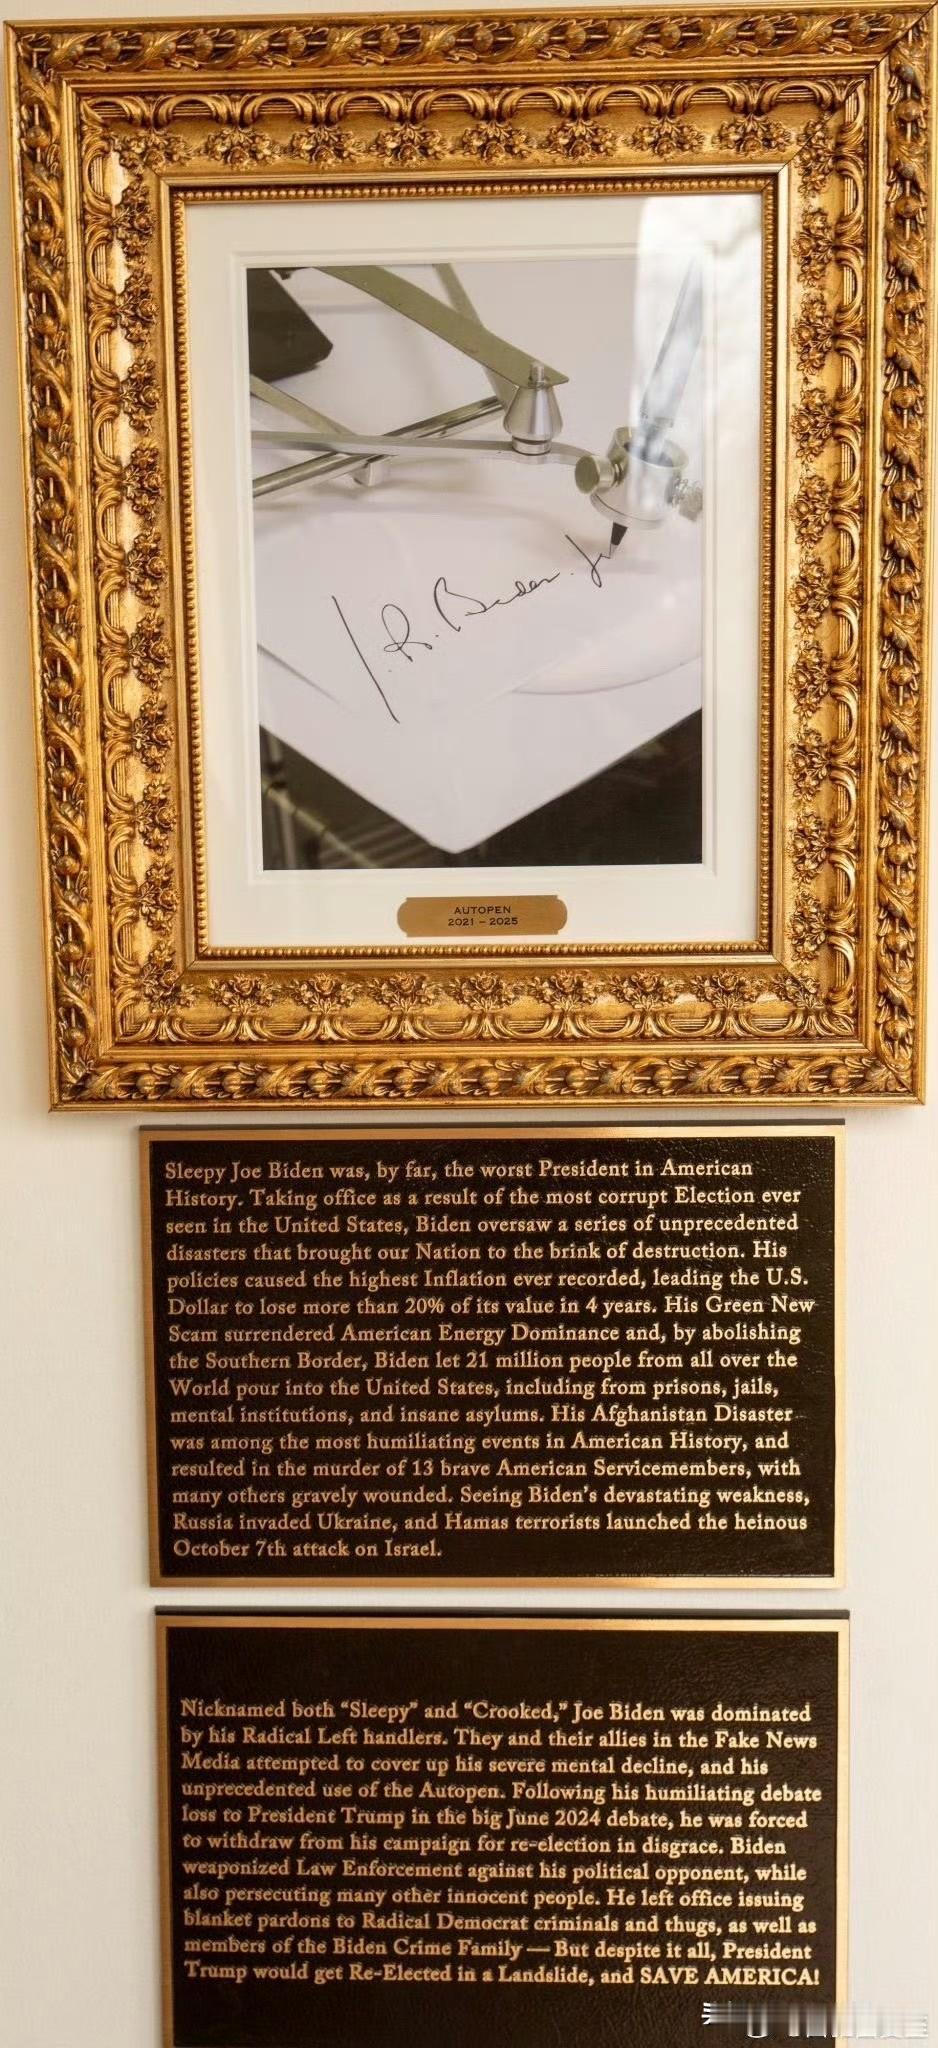 J. R. Biden Jr
AUTOPEN
2021 – 2025
Sleepy Joe Biden was, by far, the worst President in American
History. Taking office as a result of the most corrupt Election ever
seen in the United States, Biden oversaw a series of unprecedented
disasters that brought our Nation to the brink of destruction. His
policies caused the highest Inflation ever recorded, leading the U.S.
Dollar to lose more than 20% of its value in 4 years. His Green New
Scam surrendered American Energy Dominance and, by abolishing
the Southern Border, Biden let 21 million people from all over the
World pour into the United States, including from prisons, jails,
mental institutions, and insane asylums. His Afghanistan Disaster
was among the most humiliating events in American History, and
resulted in the murder of 13 brave American Servicemembers, with
many others gravely wounded. Seeing Biden's devastating weakness,
Russia invaded Ukraine, and Hamas terrorists launched the heinous
October 7th attack on Israel.
Nicknamed both “Sleepy” and “Crooked,” Joe Biden was dominated
by his Radical Left handlers. They and their allies in the Fake News
Media attempted to cover up his severe mental decline, and his
unprecedented use of the Autopen. Following his humiliating debate
loss to President Trump in the big June 2024 debate, he was forced
to withdraw from his campaign for re-election in disgrace. Biden
weaponized Law Enforcement against his political opponent, while
also persecuting many other innocent people. He left office issuing
blanket pardons to Radical Democrat criminals and thugs, as well as
members of the Biden Crime Family — But despite it all, President
Trump would get Re-Elected in a Landslide, and SAVE AMERICA!